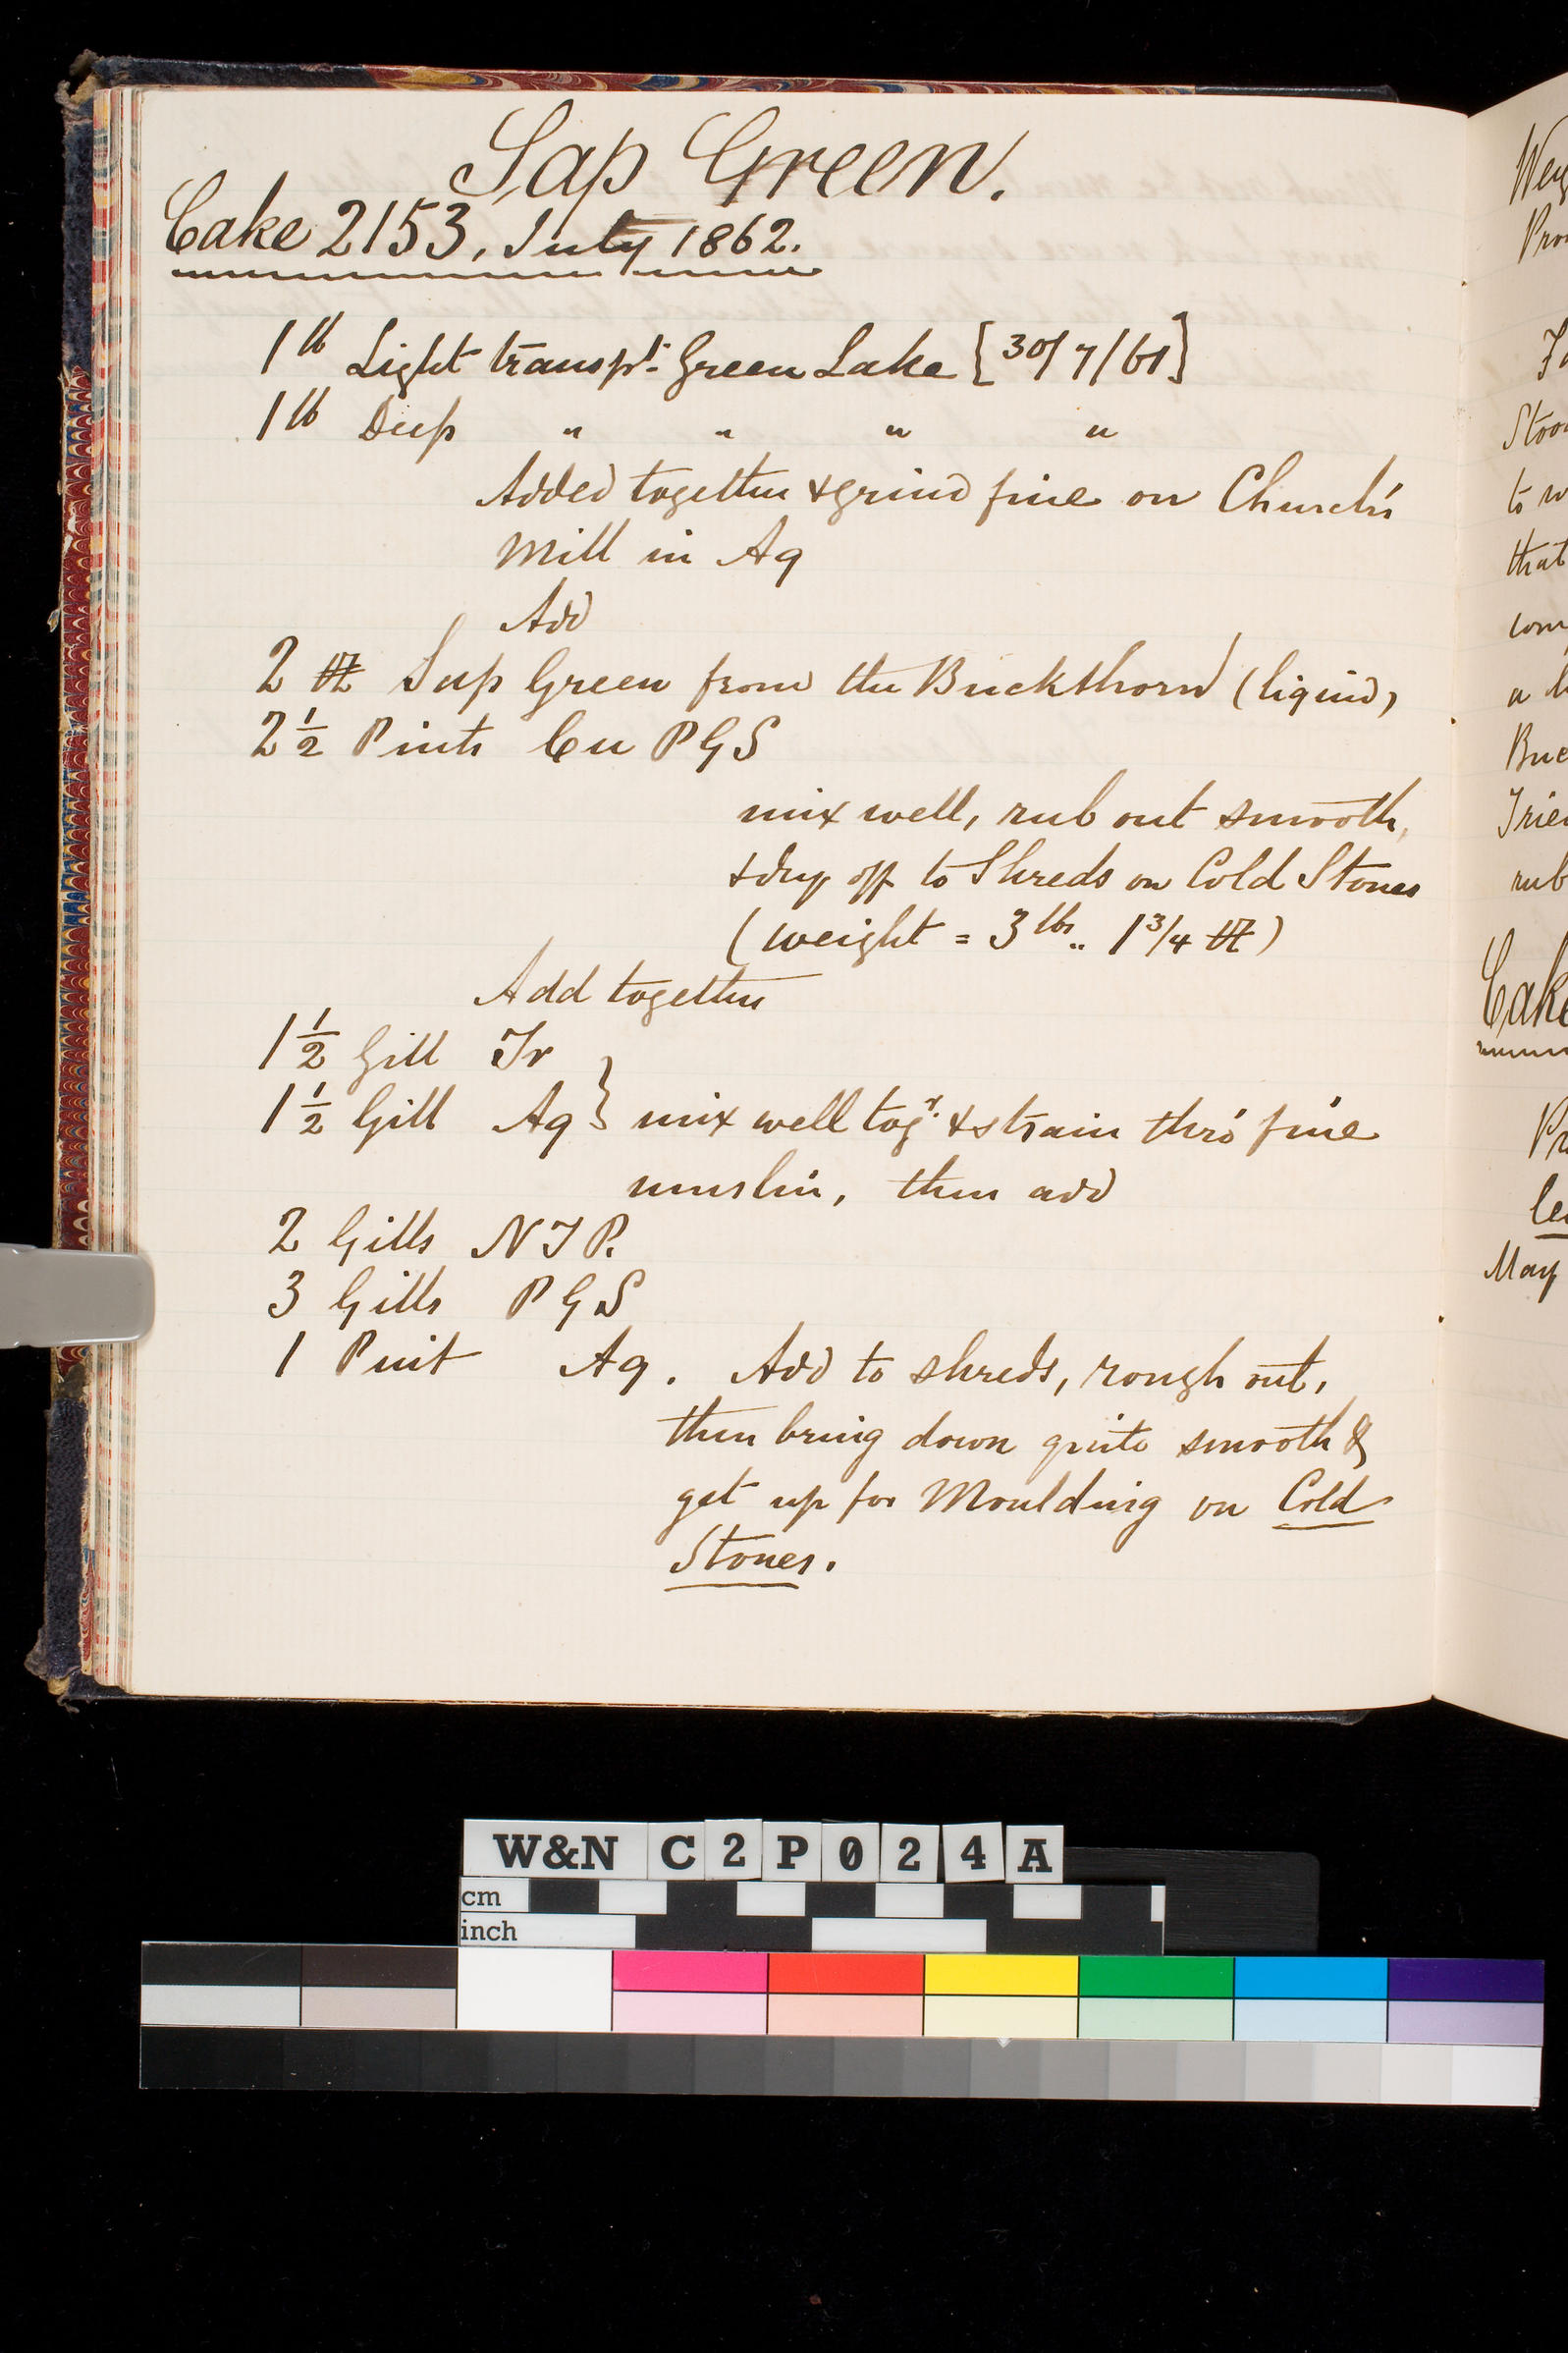 Sap Green.
Cake 2153, July 1862.
1 lb Light transpt. Green Lake [30/7/61]
1 lb Deep " " " "
Added together & grind fine on Church's
Mill in Aq
Add
2 Sap Green from the Buckthorn (liquid)
2½ Pints Cu PGS
mix well, rub out smooth,
& dry off to Shreds on Cold Stones
(weight = 3 lbs.. 1¾ )
Add together
1½ Gill Tr
1½ Gill Aq } mix well togr. & strain thro' fine
muslin, then add
2 Gills N T P.
3 Gills P G S
1 Pint Aq. Add to shreds, rough out,
then bring down quite smooth &
get up for Moulding on Cold
Stones.
Prov
Stoo
to w
that
com
a li
Buc
Trie
rub
Cake
Pr
May
W&N C2P024A
cm
inch